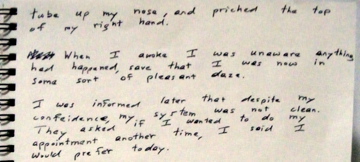 tube up my nose, and pricked the top
of my right hand.
When I awoke I was unaware anything
had happened, save that I was now in
some sort of pleasant daze.
I was informed later that despite my
confeidence, my system was not clean.
They asked if I wanted to do my
appointment another time, I said I
would prefer today.